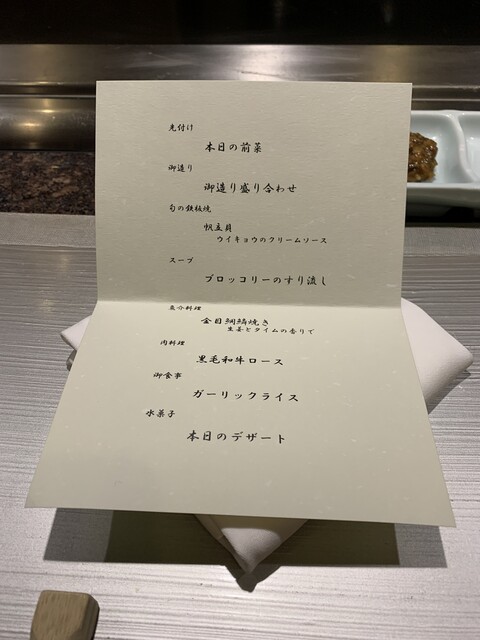 先付け
本日の前菜
御造り
御造り盛り合わせ
旬の鉄板焼
帆立貝
ウイキョウのクリームソース
スープ
ブロッコリーのすり流し
魚介料理
金目鯛鱗焼き
生姜とタイムの香りで
肉料理
黒毛和牛ロース
御食事
ガーリックライス
水菓子
本日のデザート